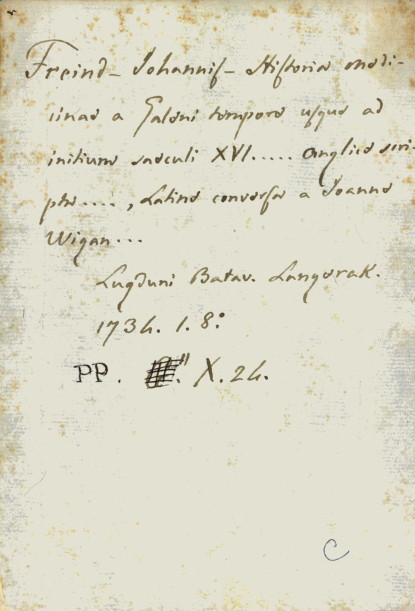 Freind - Johannis - Historia medi-
cinae a Galeni tempore usque ad
initium saeculi XVI..... anglice scri-
pta ...., Latine conversa a Joanne
Wigan ...
Lugduni Batav. Langerak.
1734. 1. 8:°
PP. X. 24.
C